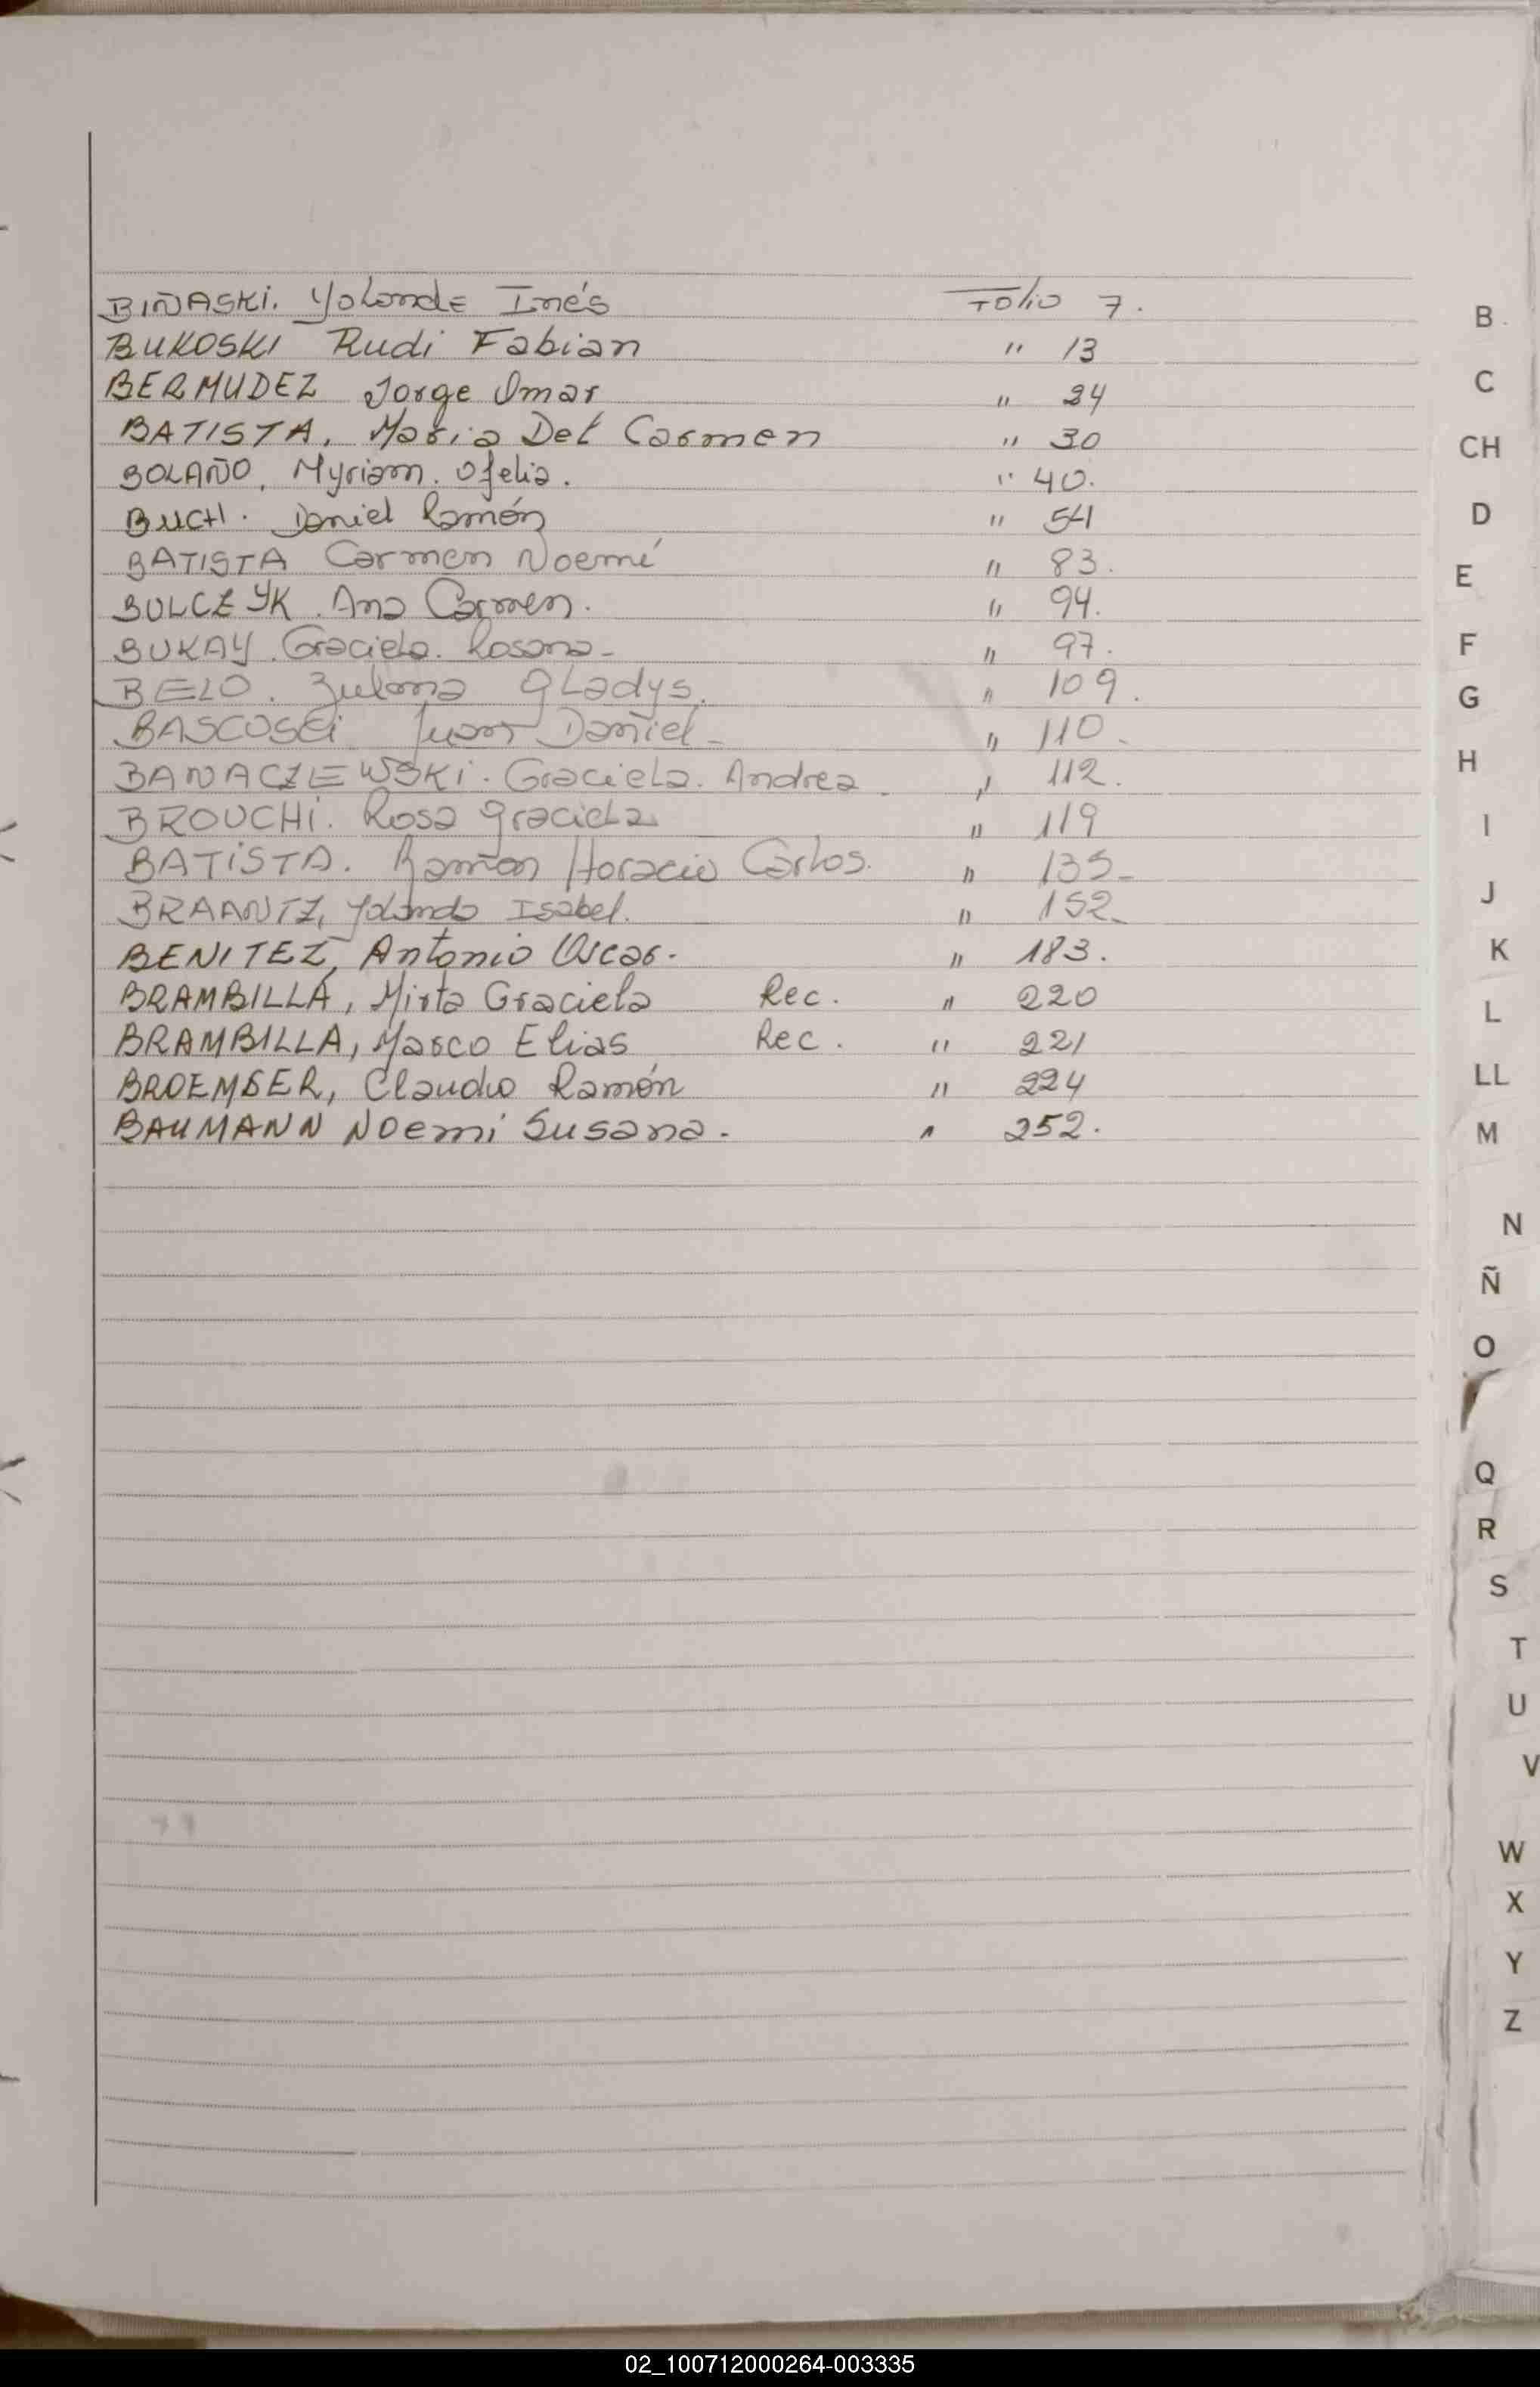 BIÑASKI. Yolande Inés Folio 7.
BUKOSKI Rudi Fabian " 13
BERMUDEZ Jorge Omar " 24
BATISTA, Maria Del Carmen " 30
BOLAÑO, Myriam. Ofelia. " 40.
BUCHI. Daniel Ramón " 54
BATISTA Carmen Noemí " 83.
BULCZYK. Ana Carmen. " 94.
BUKAY. Graciela. Rosana- " 97.
BELO. Zulema GLadys. " 109.
Juan Daniel- " 110-
BANACZEWSKi. Graciela. Andrea. " 112.
BROUCHI. Rosa graciela " 119
BATiSTA. Ramón Horacio Carlos. " 135-
BRAANTZ, Yolanda Isabel. " 152-
BENITEZ, Antonio Oscar. " 183.
BRAMBILLA, Mirta Graciela Rec. " 220
BRAMBILLA, Marco Elias Rec. " 221
BROEMSER, Claudio Ramón " 224
BAUMANN Noemi Susana. " 252.
B
C
CH
D
E
F
G
H
I
J
K
L
LL
M
N
Ñ
O
Q
R
S
T
U
V
W
X
Y
Z
02_100712000264-003335